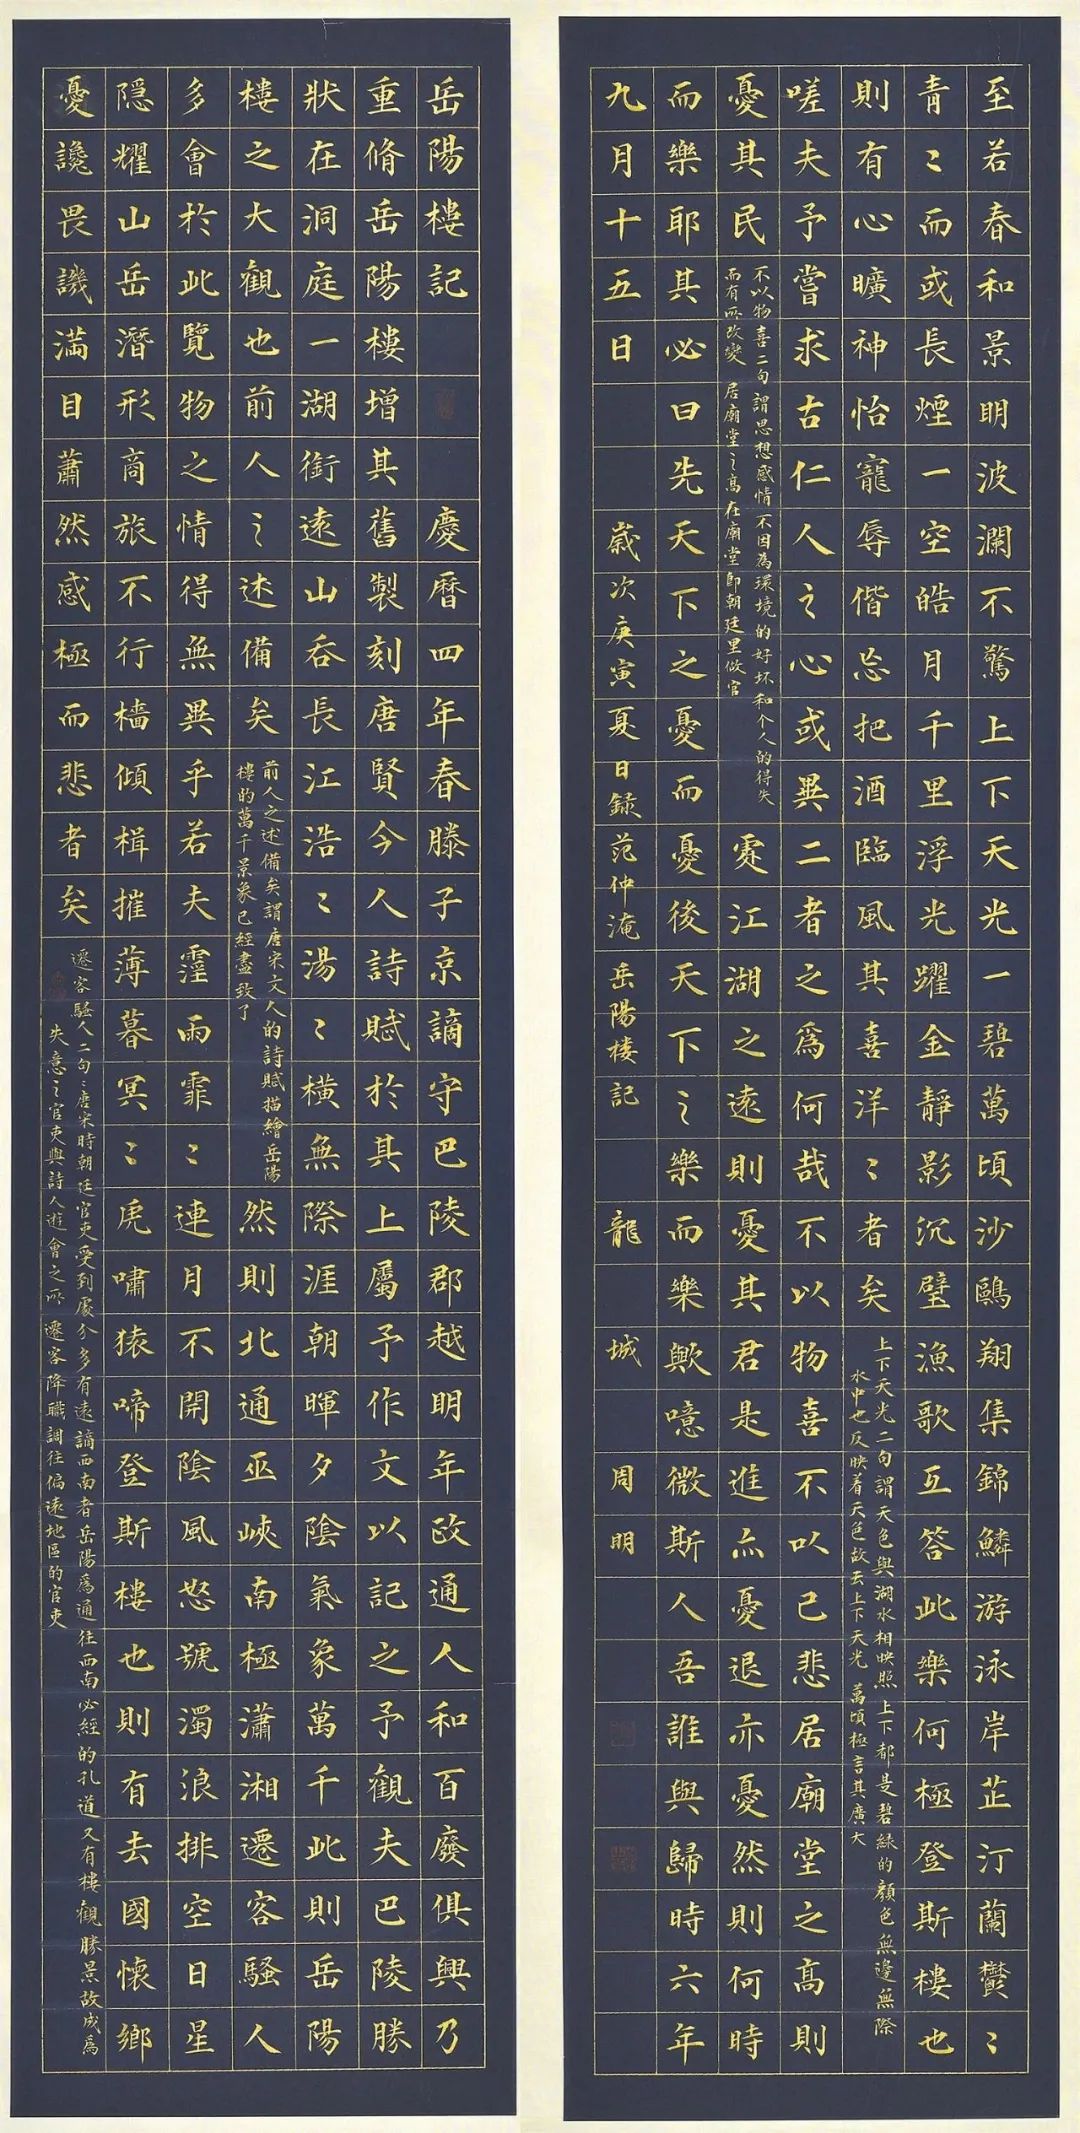 岳陽樓記 慶曆四年春滕子京謫守巴陵郡越明年政通人和百廢俱興乃
重脩岳陽樓增其舊製刻唐賢今人詩賦於其上屬予作文以記之予觀夫巴陵勝
狀在洞庭一湖銜遠山吞長江浩〻湯〻橫無際涯朝暉夕陰氣象萬千此則岳陽
樓之大觀也前人之述備矣
前人之述備矣謂唐宋文人的詩賦描繪岳陽
樓的萬千景象已經盡致了
然則北通巫峽南極瀟湘遷客騷人
多會於此覽物之情得無異乎若夫霪雨霏〻連月不開陰風怒號濁浪排空日星
隱耀山岳潛形商旅不行檣傾楫摧薄暮冥〻虎嘯猿啼登斯樓也則有去國懷鄉
憂讒畏譏滿目蕭然感極而悲者矣
遷客騷人二句〻唐宋時朝廷官吏受到處分多有遠謫西南者岳陽為通往西南必經的孔道又有樓觀勝景故成為
失意之官吏與詩人遊會之所 遷客降職調往偏遠地區的官吏
至若春和景明波瀾不驚上下天光一碧萬頃沙鷗翔集錦鱗游泳岸芷汀蘭鬱〻
青〻而或長煙一空皓月千里浮光躍金靜影沉璧漁歌互答此樂何極登斯樓也
則有心曠神怡寵辱偕忘把酒臨風其喜洋〻者矣
上下天光二句謂天色與湖水相映照上下都是碧綠的顏色無邊無際
水中也反映着天色故云上下天光 萬頃極言其廣大
嗟夫予嘗求古仁人之心或異二者之為何哉不以物喜不以己悲居廟堂之高則
憂其民
不以物喜二句謂思想感情不因為環境的好坏和个人的得失
而有所改變 居廟堂之高在廟堂即朝廷里做官
處江湖之遠則憂其君是進亦憂退亦憂然則何時
而樂耶其必曰先天下之憂而憂後天下之樂而樂歟噫微斯人吾誰與歸時六年
九月十五日 歲次庚寅夏日録范仲淹岳陽楼記 龍城周明